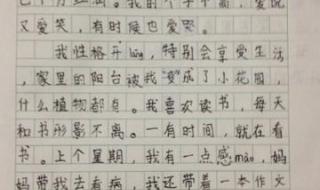 又爱笑，有时候也爱哭。
我性格开lǎng，特别会享受生活，
家里的阳台被我变成了小花园，
什么植物都有。我喜欢读书，每天
和书形影不离。一有时间，就在看
书。上个星期，我有一点感mào，妈
妈带我去看病，我还带着一本作文